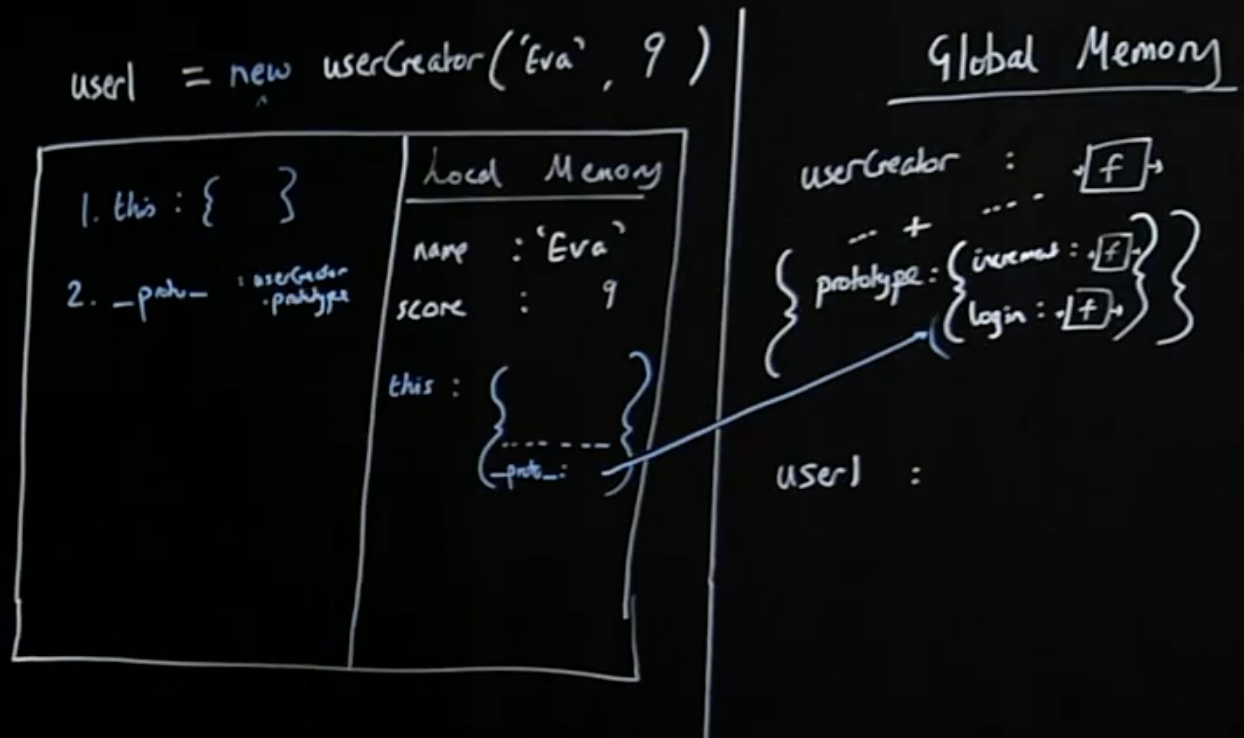 user1 = new userCreator('Eva', 9)
1. this : { }
2. _proto_ : userCreator
.prototype
Local Memory
name : 'Eva'
score : 9
this : {
_proto_: }
Global Memory
userCreator : f
--- + ----
{ prototype: { increment : f
login : f } }
user1 :